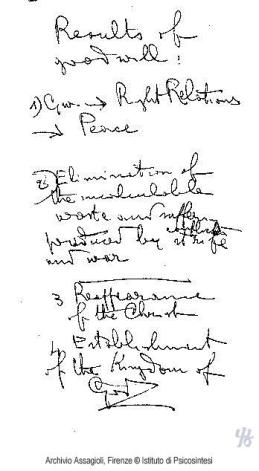 Results of
good will:
1) G.w. → Right Relations
→ Peace
2) Elimination of
the incalculable
waste and suffering
produced by strife
and war
3 Reappearance
of the Christ
4. Establishment
of the Kingdom of
God
Archivio Assagioli, Firenze © Istituto di Psicosintesi